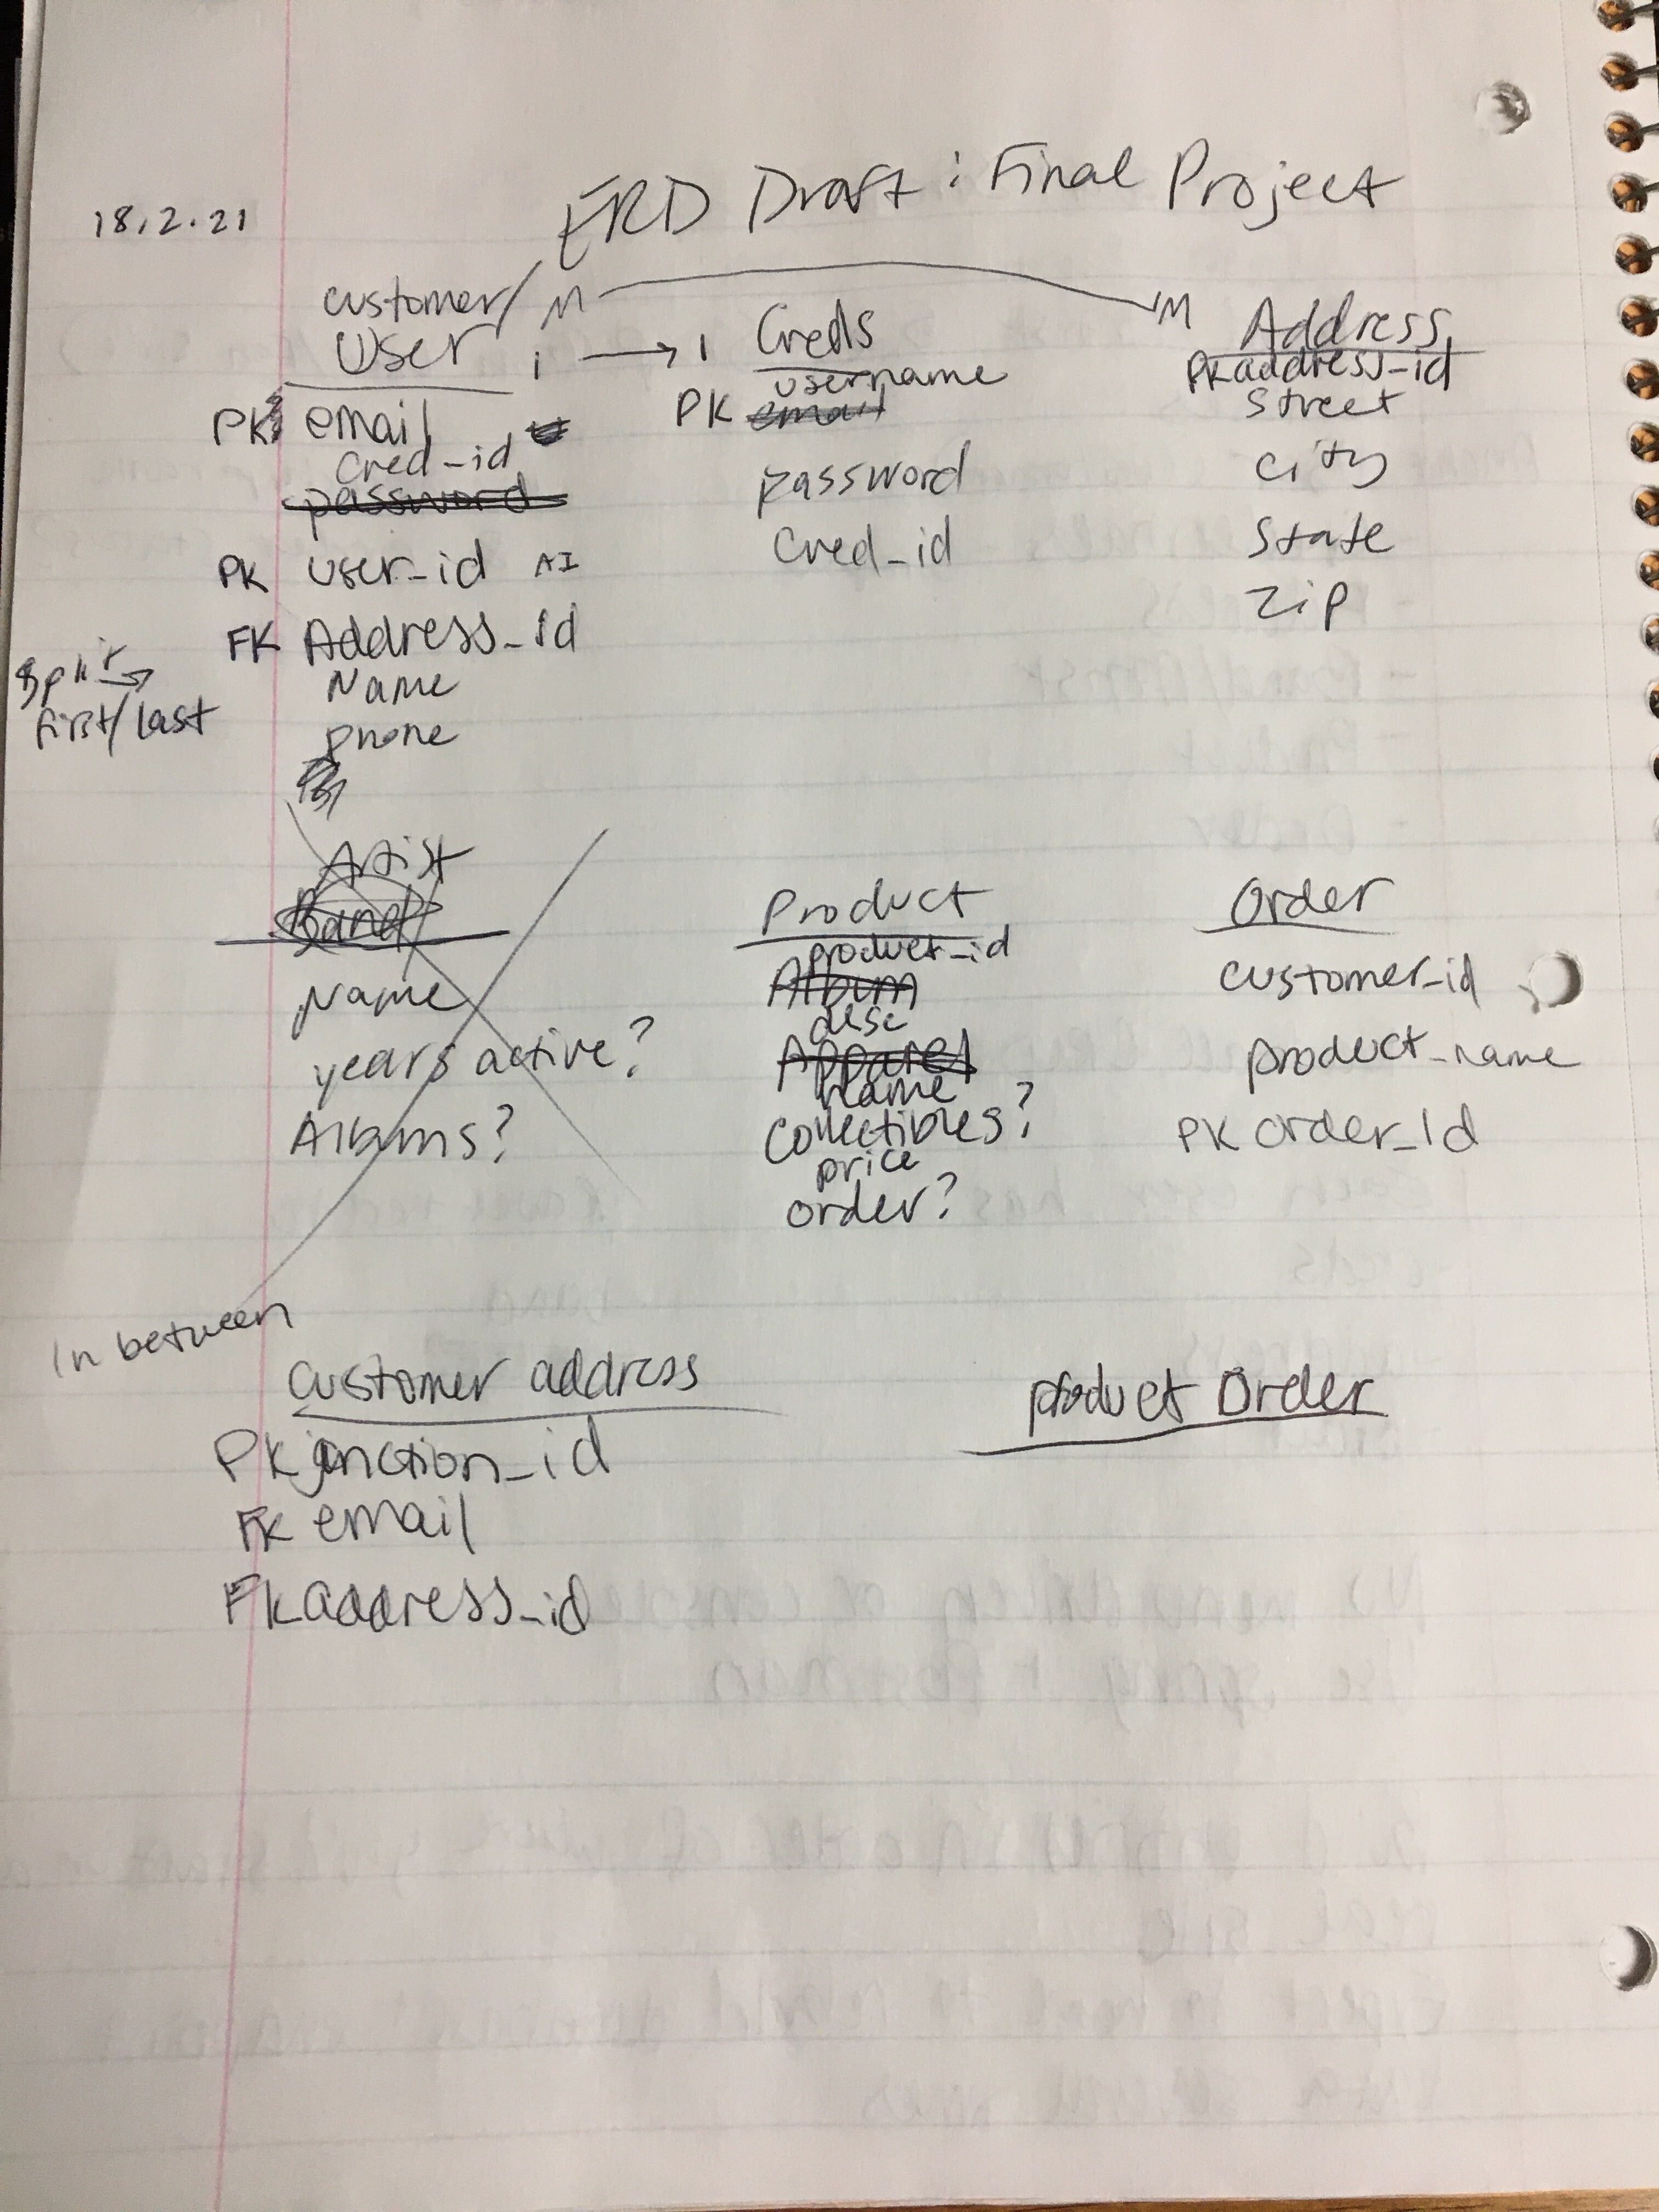 18.2.21
ERD Draft: Final Project
customer/
User
M
M
1 → 1
PK email
cred_id
password
PK user_id AI
FK Address_id
Name
phone
Split →
first/last
Creds
username
PK email
password
Cred_id
Address
PK address_id
Street
City
State
Zip
Artist
Band/
Name
years active?
Albums?
Product
product_id
Album
desc
Apparel
name
Collectibles?
price
order?
Order
customer_id
product_name
PK order_id
In between
customer address
PK junction_id
FK email
FK address_id
product Order